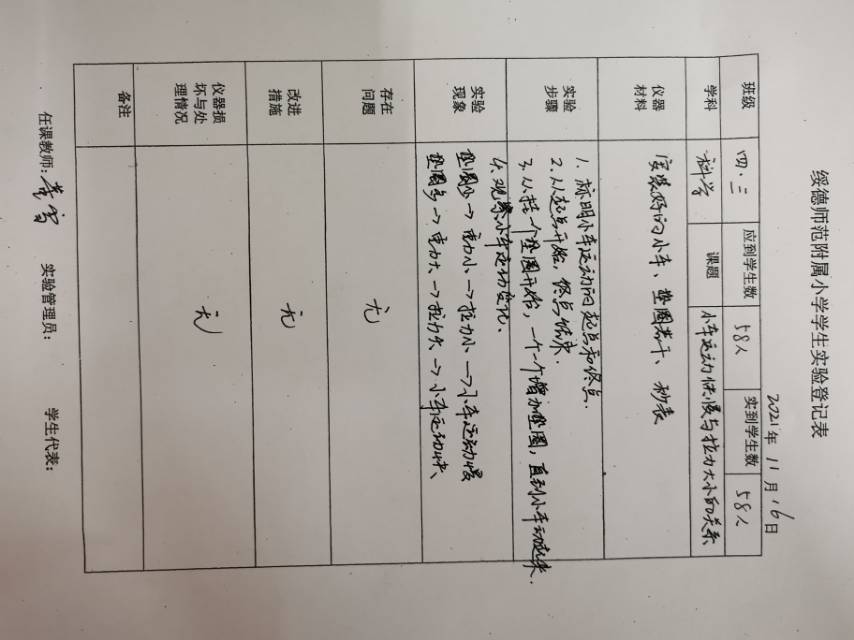 绥德师范附属小学学生实验登记表
2021年11月16日
班级 四.三 应到学生数 58人 实到学生数 58人
学科 科学 课题 小车运动快慢与拉力大小的关系
仪器材料 安装好的小车、垫圈若干、秒表
实验步骤 1. 标明小车运动的起点和终点.
2. 从起点开始, 终点结束.
3. 从挂一个垫圈开始, 一个一个增加垫圈, 直到小车动起来.
4. 观察小车运动变化、
实验现象 垫圈少→重力小→拉力小→小车运动慢
垫圈多→重力大→拉力大→小车运动快、
存在问题 无
改进措施 无
仪器损坏与处理情况 无
备注
任课教师: 实验管理员: 学生代表: